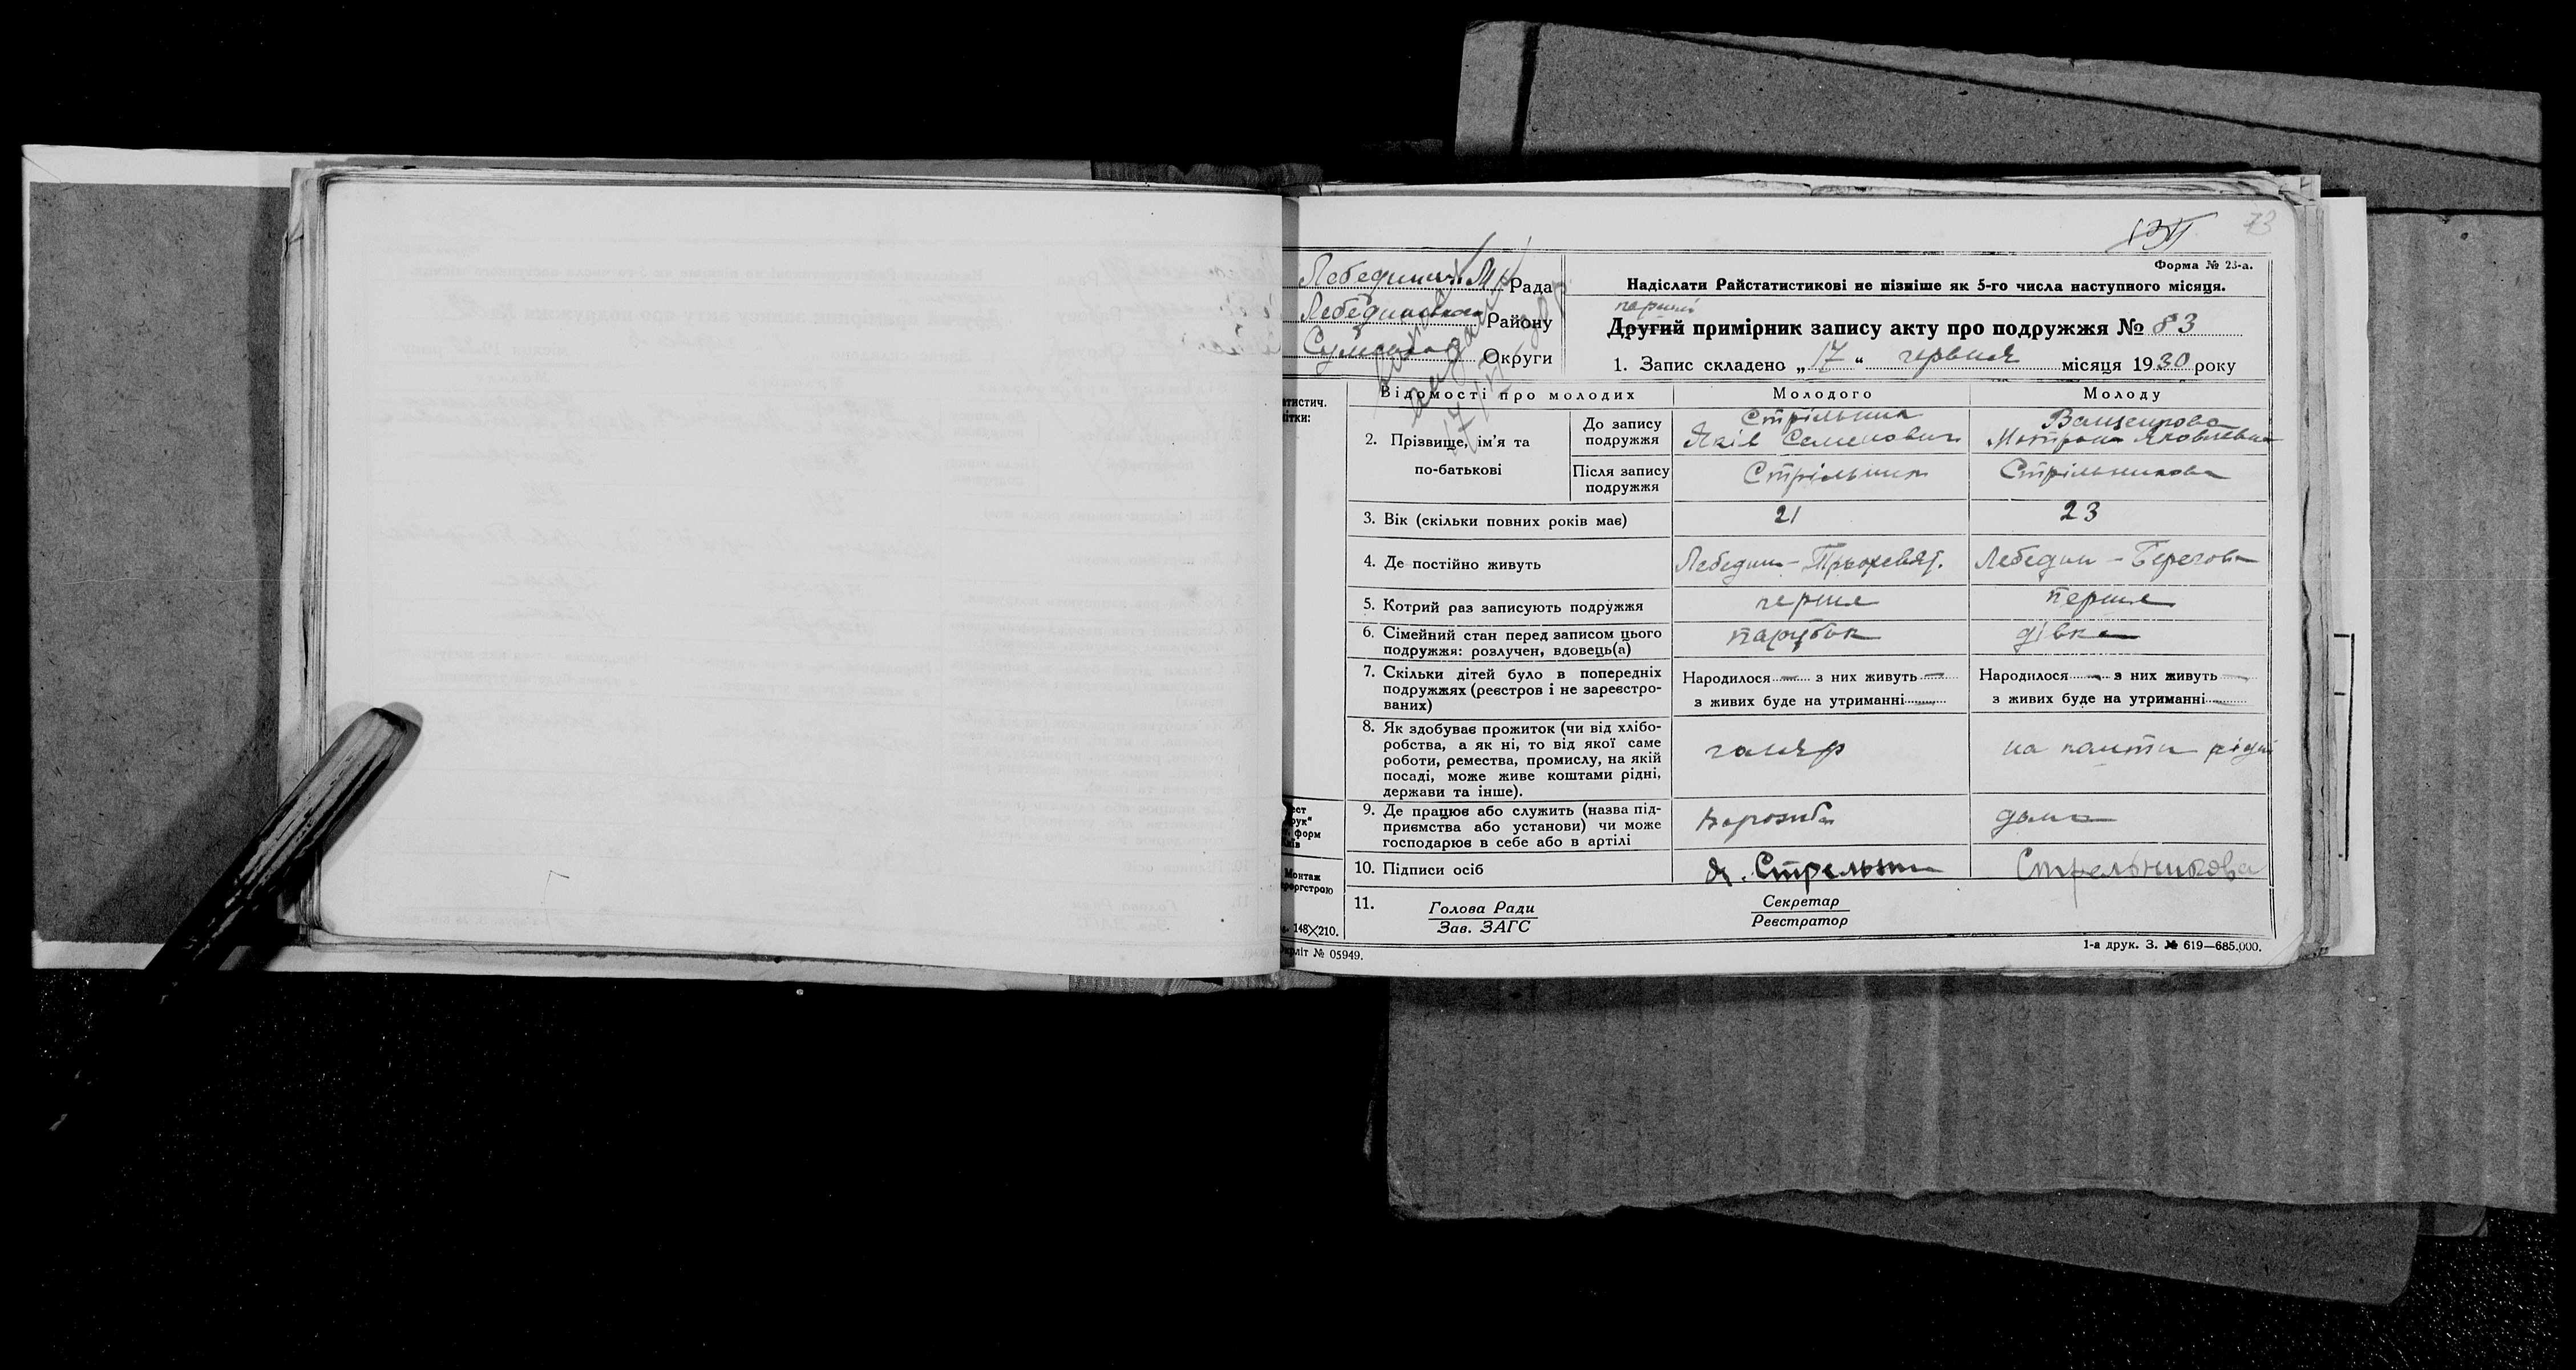 73
Форма № 23-а.
Лебединська Рада
Надіслати Райстатистикові не пізніше як 5-го числа наступного місяця.
Лебединського Району
перший
Другий примірник запису акту про подружжя № 83
Сумської Округи
1. Запис складено „17“ червня місяця 1930 року
Відомості про молодих
Молодого
Молоду
2. Прізвище, ім'я та по-батькові
До запису подружжя
Стрільник
Яків Семенович
Мотрона Яковлевна
Після запису подружжя
Стрільник
Стрільникова
3. Вік (скільки повних років має)
21
23
4. Де постійно живуть
Лебедин - Трьохсвят.
Лебедин - Берегова
5. Котрий раз записують подружжя
перше
перше
6. Сімейний стан перед записом цього
подружжя: розлучен, вдовець(а)
парубок
дівка
7. Скільки дітей було в попередніх
подружжях (реєстров і не зареєстро-
ваних)
Народилося — з них живуть —
з живих буде на утриманні
Народилося — з них живуть —
з живих буде на утриманні
8. Як здобуває прожиток (чи від хлібо-
робства, а як ні, то від якої саме
роботи, ремества, промислу, на якій
посаді, може живе коштами рідні,
держави та інше).
на кошти рідні
9. Де працює або служить (назва під-
приємства або установи) чи може
господарює в себе або в артілі
Ворожба
дома
10. Підписи осіб
Я. Стрельник
Стрельникова
11.
Голова Ради
Зав. ЗАГС
Секретар
Реєстратор
148×210.
№ 05949.
1-а друк. З. № 619—685.000.